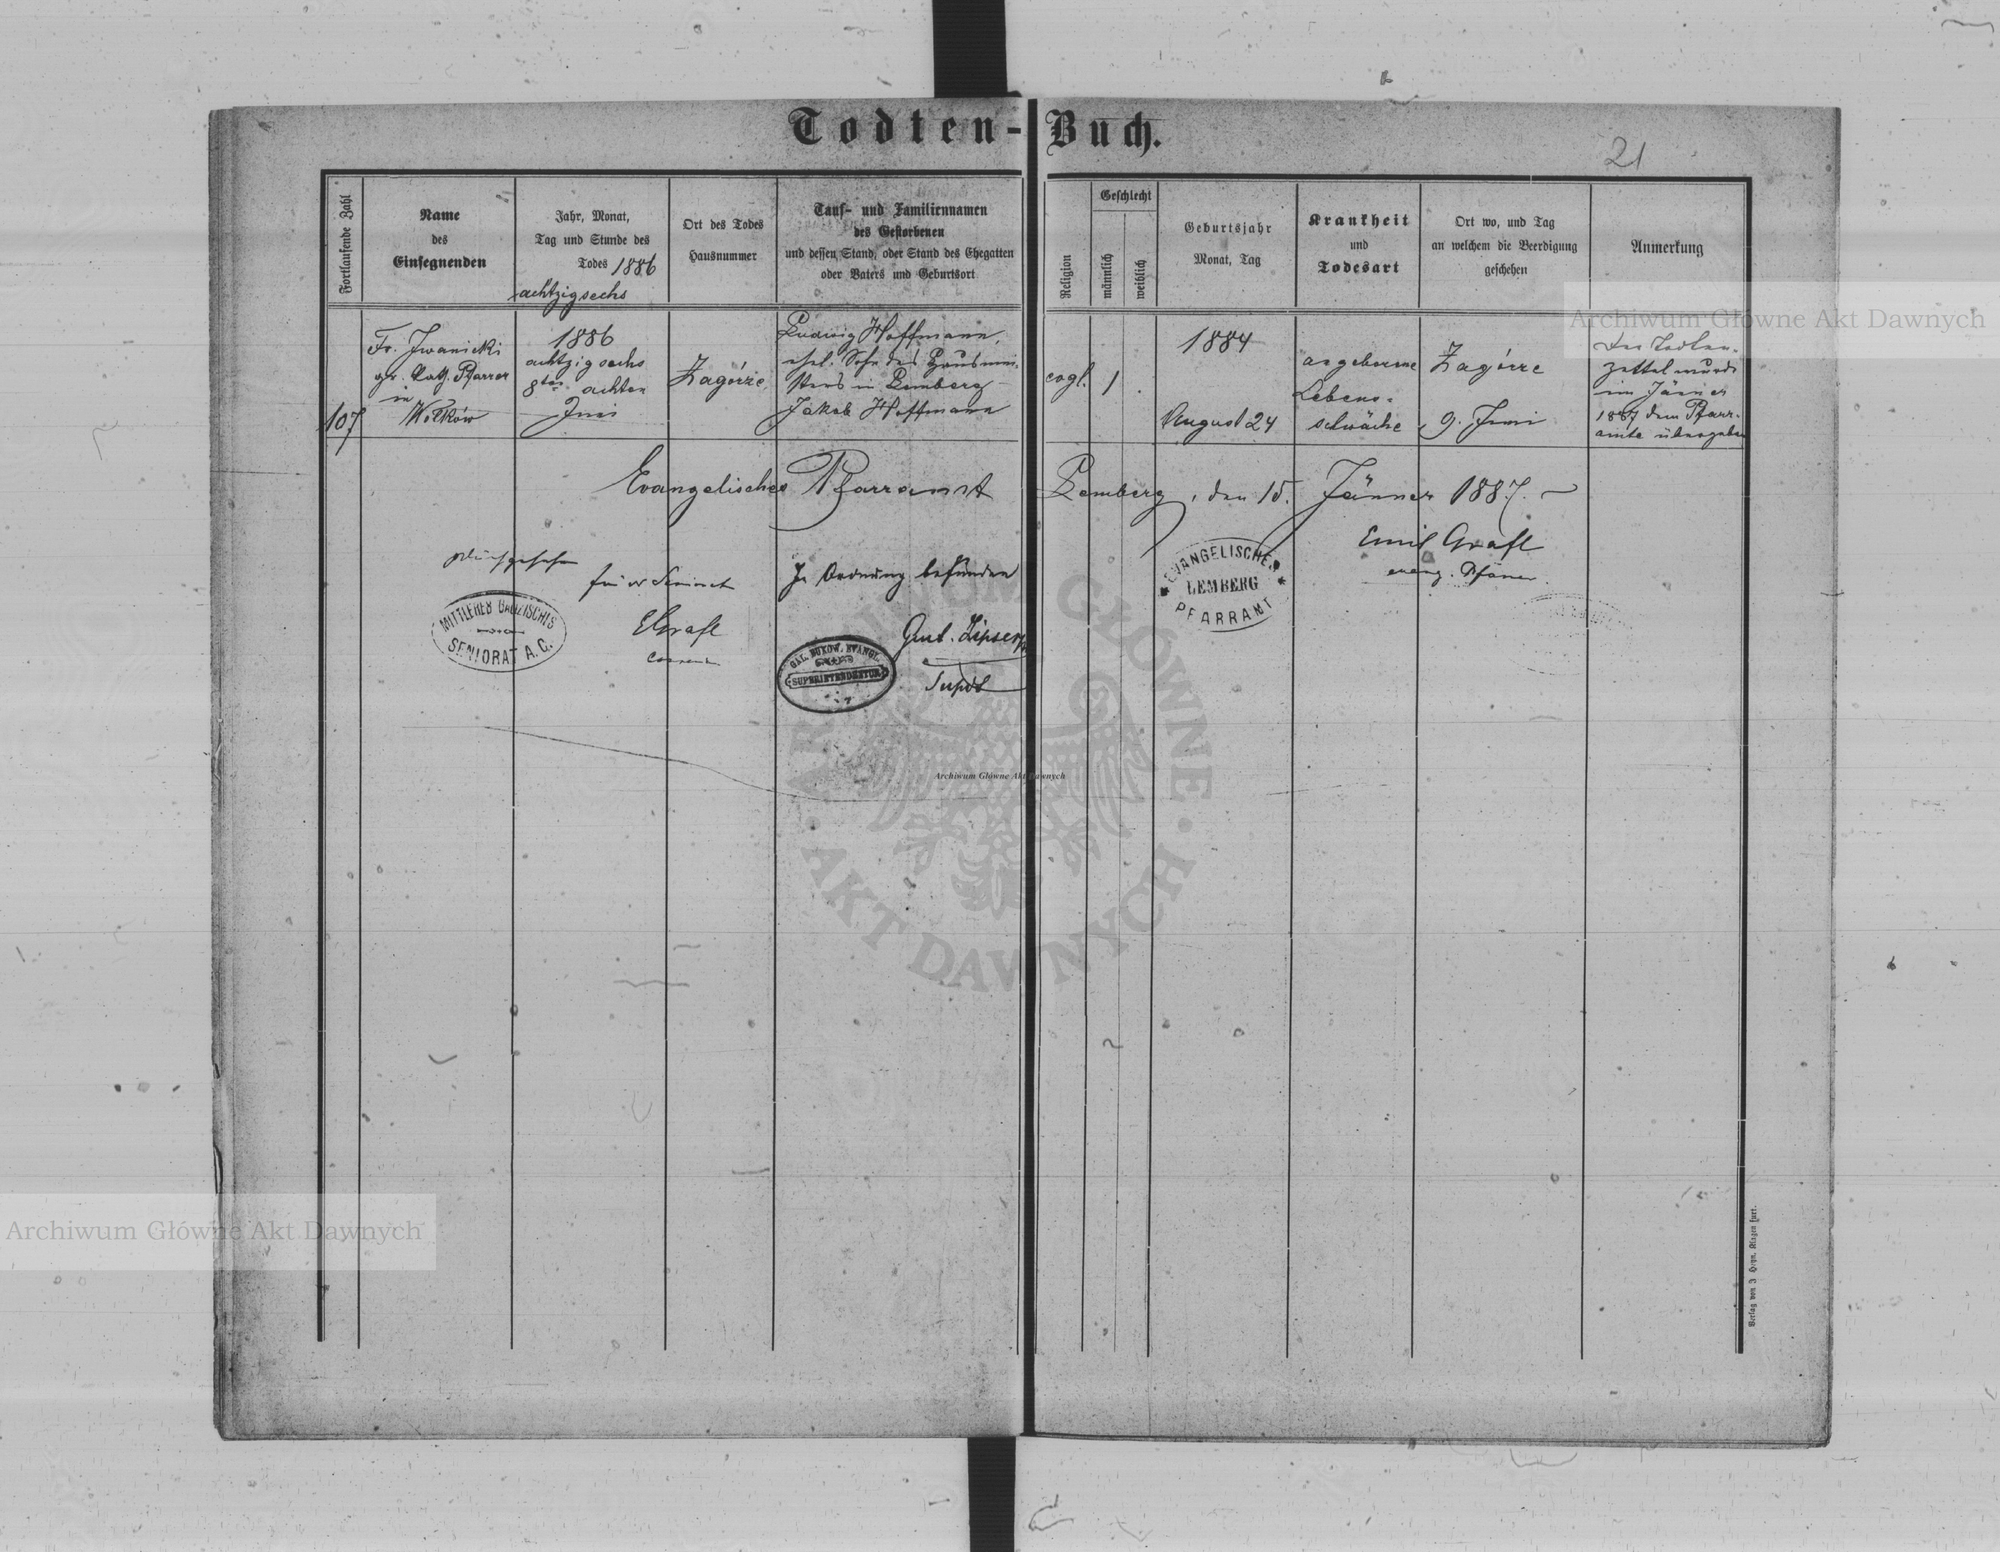 Todten-Buch.
21
Fortlaufende Zahl
Name
des
Einsegnenden
Jahr, Monat,
Tag und Stunde des
Todes 1886
achtzigsechs
Ort des Todes
Hausnummer
Tauf- und Familiennamen
des Gestorbenen
und dessen Stand, oder Stand des Ehegatten
oder Vaters und Geburtsort
Religion
Geschlecht
männlich
weiblich
Geburtsjahr
Monat, Tag
Krankheit
und
Todesart
Ort wo, und Tag
an welchem die Beerdigung
geschehen
Anmerkung
107
Fr. Iwanicki
gr. kath. Pfarrer
in
Wołków
1886
achtzigsechs
8ten achten
Juni
Zagórze
Ludwig Hoffmann,
ehel. Sohn des Hausmei-
sters in Lemberg
Jakob Hoffmann
evgl.
1
1884
August 24
angeborene
Lebens-
schwäche
Zagórze
9. Juni
Der Todten-
zettel wurde
im Jänner
1887 dem Pfarr-
amte übergeben
Evangelisches Pfarramt Lemberg, den 15. Jänner 1887.
Emil Grafl
evang. Pfarrer.
EVANGELISCHES
LEMBERG
PFARRAMT
Durchgesehen
für das Seniorat
EGrafl
MITTLERES GALIZISCHES
SENIORAT A.C.
In Ordnung befunden
GAL. BUKOW. EVANGL.
SUPERINTENDENTUR
Supdt
Archiwum Główne Akt Dawnych
ARCHIWUM GŁÓWNE AKT DAWNYCH
Archiwum Główne Akt Dawnych
Archiwum Główne Akt Dawnych
Verlag von J Heyn, Klagenfurt.